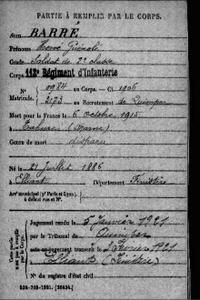 PARTIE À REMPLIR PAR LE CORPS.
Nom BARRÉ
Prénoms Hervé Guénolé
Grade Soldat de 2e classe
Corps 118e Régiment d'Infanterie
N° 0984 au Corps. — Cl. 1906
Matricule. 2173 au Recrutement de Quimper
Mort pour la France le 6 octobre 1915
à Tahure (Marne)
Genre de mort disparu
Né le 21 juillet 1886
à Elliant Département Finistère
Arr' municipal (p' Paris et Lyon),
à défaut rue et N°.
Jugement rendu le 5 Janvier 1921
par le Tribunal de Quimper
acte ou jugement transcrit le 2 février 1921
à Elliant (Finistère)
N° du registre d'état civil